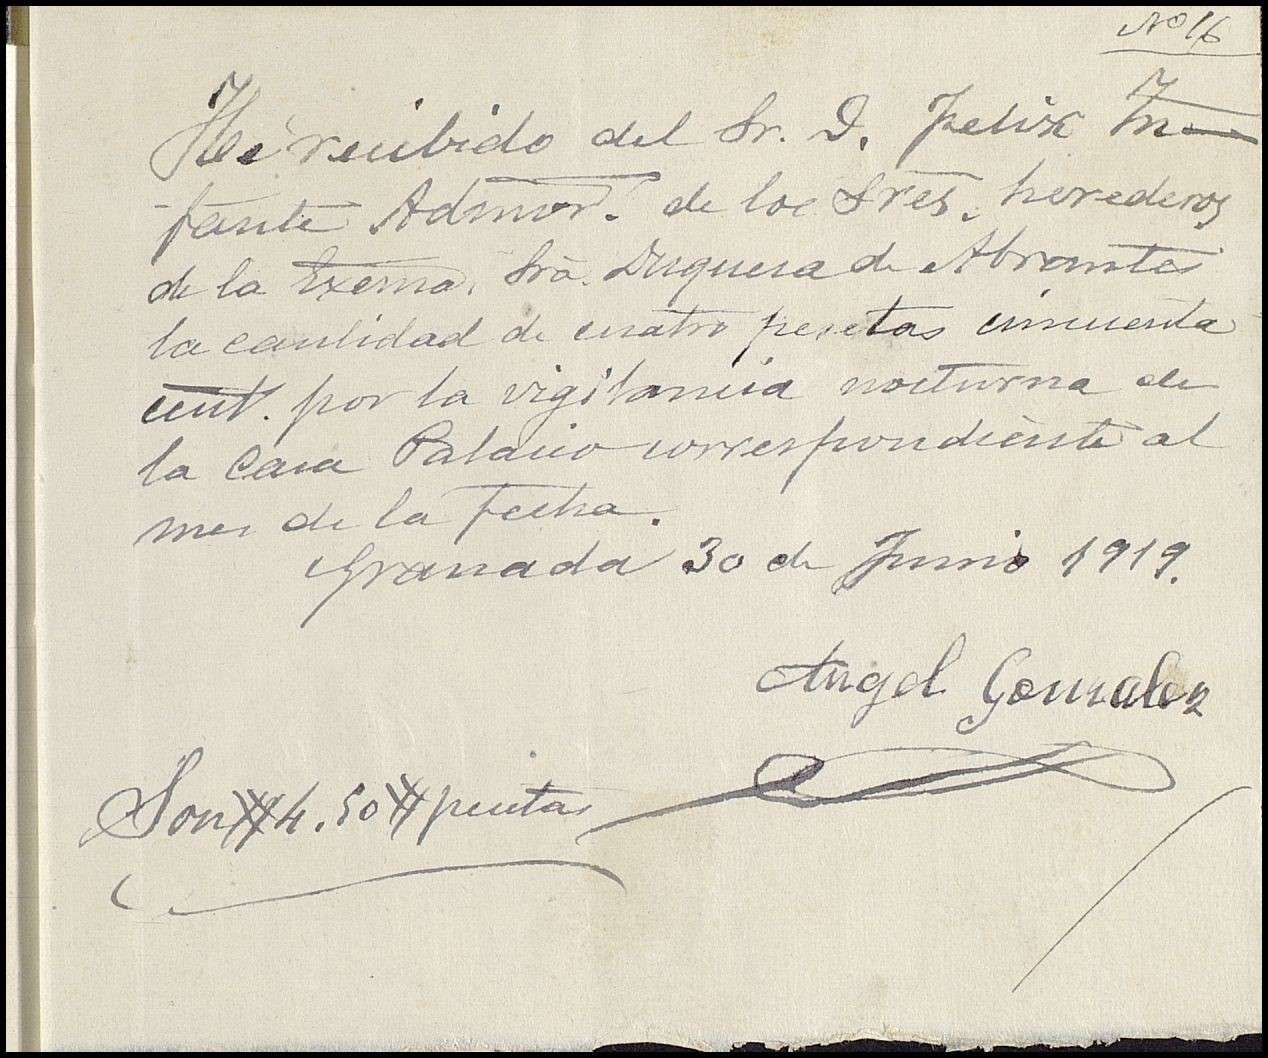 Nº 16
He recibido del Sr. D. Felix In-
fante Admor. de los Sres. herederos
de la Exema. Sra. Duquesa de Abrantes
la cantidad de cuatro pesetas cincuenta
cent. por la vigilancia nocturna de
la Casa Palacio correspondiente al
mes de la fecha.
Granada 30 de Junio 1919.
Angel Gonzalez
Son # 4.50 # pesetas